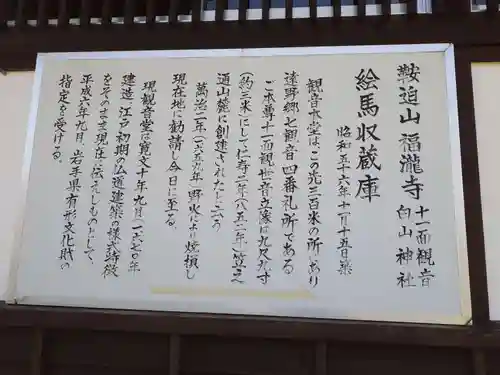 鞍迫山 福瀧寺 十一面観音
白山神社
絵馬収蔵庫
昭和五十六年十一月十五日築
観音本堂は、この先三百米の所にあり
遠野郷七観音四番礼所である
ご本尊十一面観世音立像は九尺九寸
(約三米)にして仁寿二年(八五二年)笠之へ
通山麓に創建されたと云う
萬治二年(一六五九年)野火により焼損し
現在地に勧請し今日に至る。
現観音堂は寛文十年九月(一六七〇年)
建造、江戸初期の仏道建築の様式特徴
をそのまま現在に伝えしものとして、
平成六年九月、岩手県有形文化財の
指定を受ける。